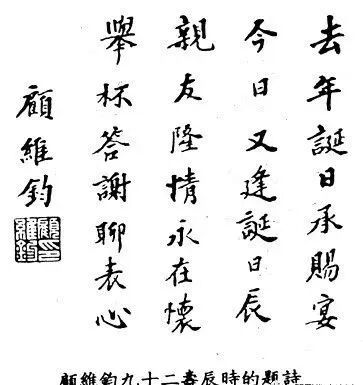 去年誕日承賜宴
今日又逢誕日辰
親友隆情永在懷
舉杯答謝聊表心
顧維鈞
顧維鈞印
詩題的時辰壽二十九鈞維顧